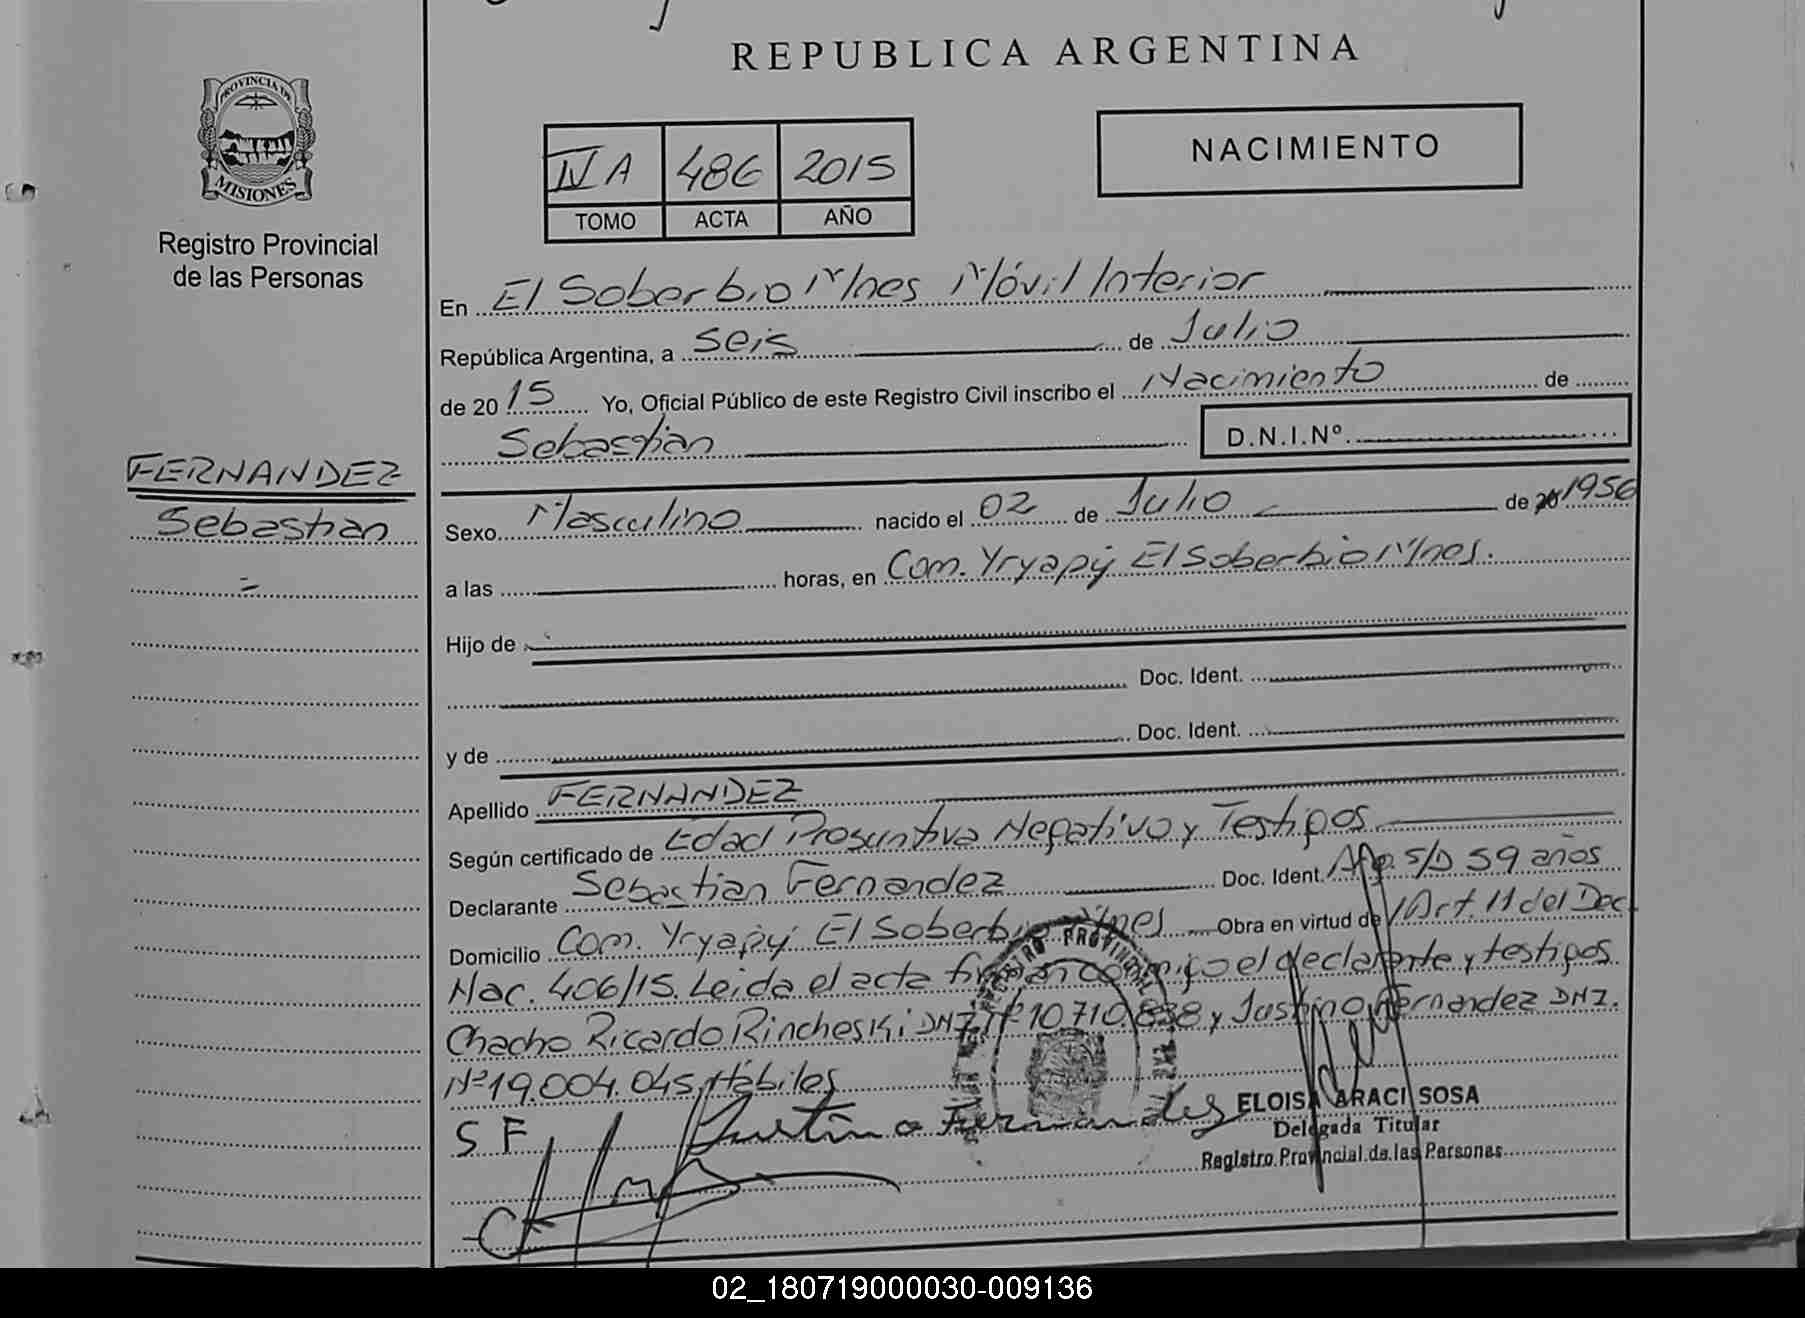 REPUBLICA ARGENTINA
PROVINCIA DE
MISIONES
Registro Provincial
de las Personas
IV A 486 2015
TOMO ACTA AÑO
NACIMIENTO
En El Soberbio Mnes Móvil Interior
República Argentina, a seis de Julio
de 2015 Yo, Oficial Público de este Registro Civil inscribo el Nacimiento de
Sebastian D.N.I.Nº
FERNANDEZ
Sebastian
Sexo Masculino nacido el 02 de Julio de 1956
a las horas, en Com. Yryapy El Soberbio Mnes.
Hijo de
Doc. Ident.
y de Doc. Ident.
Apellido FERNANDEZ
Según certificado de Edad Presuntiva Negativo y Testigos
Declarante Sebastian Fernandez Doc. Ident. Arg. S/D 59 años
Domicilio Com. Yryapy El Soberbio Mnes Obra en virtud de Art. 11 del Dec
Nac. 406/15. Leida el acta firman conmigo el declarante y testigos
Chacho Ricardo Rincheski DNI. Nº 10710.838 y Justino Fernandez DNI.
Nº 19.004.045, Hábiles
S F Justino Fernandes
REGISTRO PROVINCIAL
ELOISA ARACI SOSA
Delegada Titular
Registro Provincial de las Personas
02_180719000030-009136